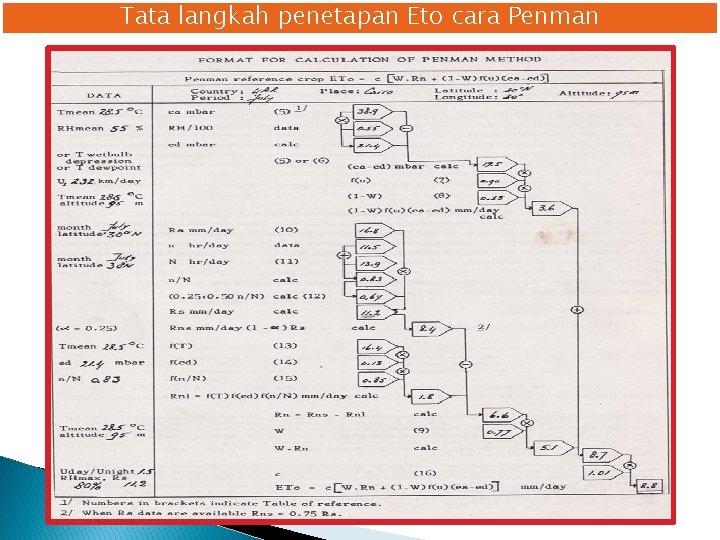 Tata langkah penetapan Eto cara Penman
FORMAT FOR CALCULATION OF PENMAN METHOD
Penman reference crop ETo = c [W.Rn + (1-W)f(u)(ea-ed)]
DATA Country: UAR Place: Cairo Latitude : 30°N Altitude: 95m
Period : July Longitude: 30°
Tmean 28.5 °C ea mbar (5) 1/ 38.9
RHmean 55 % RH/100 data 0.55
ed mbar calc 21.4
or T wetbulb depression or T dewpoint (5) or (6) (ea-ed) mbar calc 17.5
U2 232 km/day f(u) (7) 0.90
Tmean 28.5 °C altitude 95 m (1-W) (8) 0.23
(1-W)f(u)(ea-ed) mm/day calc 3.6
month July latitude 30°N Ra mm/day (10) 16.8
n hr/day data 11.5
month July latitude N N hr/day (11) 13.9
n/N calc 0.83
(0.25+0.50 n/N) calc (12) 0.67
Rs mm/day calc 11.2
(α = 0.25) Rns mm/day (1-α)Rs calc 8.4 2/
Tmean 28.5 °C f(T) (13) 16.4
ed 21.4 mbar f(ed) (14) 0.13
n/N 0.83 f(n/N) (15) 0.85
Rnl = f(T)f(ed)f(n/N) mm/day calc 1.8
Rn = Rns - Rnl calc 6.6
Tmean 28.5 °C altitude 95 m W (9) 0.77
W.Rn calc 5.1
8.7
Uday/Unight 1.5 RHmax, Rs 80% 11.2 c (16) 1.01
ETo = c [W.Rn + (1-W)f(u)(ea-ed)] mm/day 8.8
1/ Numbers in brackets indicate Table of reference.
2/ When Rs data are available Rns = 0.75 Rs.